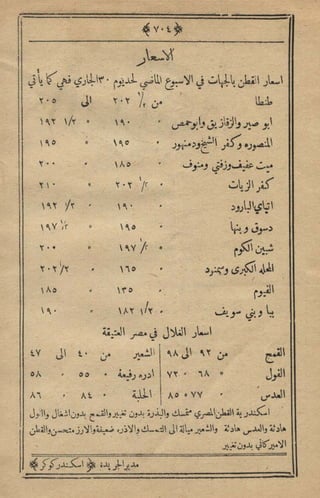 ﴿ ٧٠٤ ﴾
الاسعار
اسعار القطن بالجهات في الاسبوع الماضي لحد يوم ٣٠ الجاري فهي كما يأتي
طنطا من ١/٢ ٢٠٢ الى ٢٠٥
ابو صير والزقازيق وابو حمص " ١٩٠ " ١/٢ ١٩٢
المنصوره وكفر الشيخ ودمنهور " ١٩٥ " ١٩٥
ميت عفيف وزفتى ومنوف " ١٨٥ " ٢٠٠
كفر الزيات " ١/٢ ٢٠٢ " ٢١٠
اتياي البارود " ١٩٠ " ١/٢ ١٩٢
دسوق وبنها " ١٩٥ " ١/٢ ١٩٧
شبين الكوم " ١/٢ ١٩٧ " ٢٠٠
المحله الكبرى وسمنود " ١٦٥ " ١/٢ ٢٠٢
الفيوم " ١٣٥ " ١٨٥
ببا وبني سويف " ١/٢ ١٨٢ " ١٩٠
اسعار الغلال في مصر العتيقة
القمح من ٩٢ الى ٩٨ الشعير من ٤٠ الى ٤٧
الفول " ٦٨ " ٧٢ اذره رفيعة " ٥٥ " ٥٨
العدس " ٧٧ " ٨٥ الحلبة " ٨٤ " ٨٦
اسكندرية القطن المصري متمسك والبذرة بدون تغيير والقمح بدون اشغال والفول
هادئة والعدس هادئة والشعير ميالة الى التمسك والاذره ضعيفة والارز متحسن والقطن
الاميركاني بدون تغيير
مدير الجريدة ﴿ اسكندر كركر ﴾